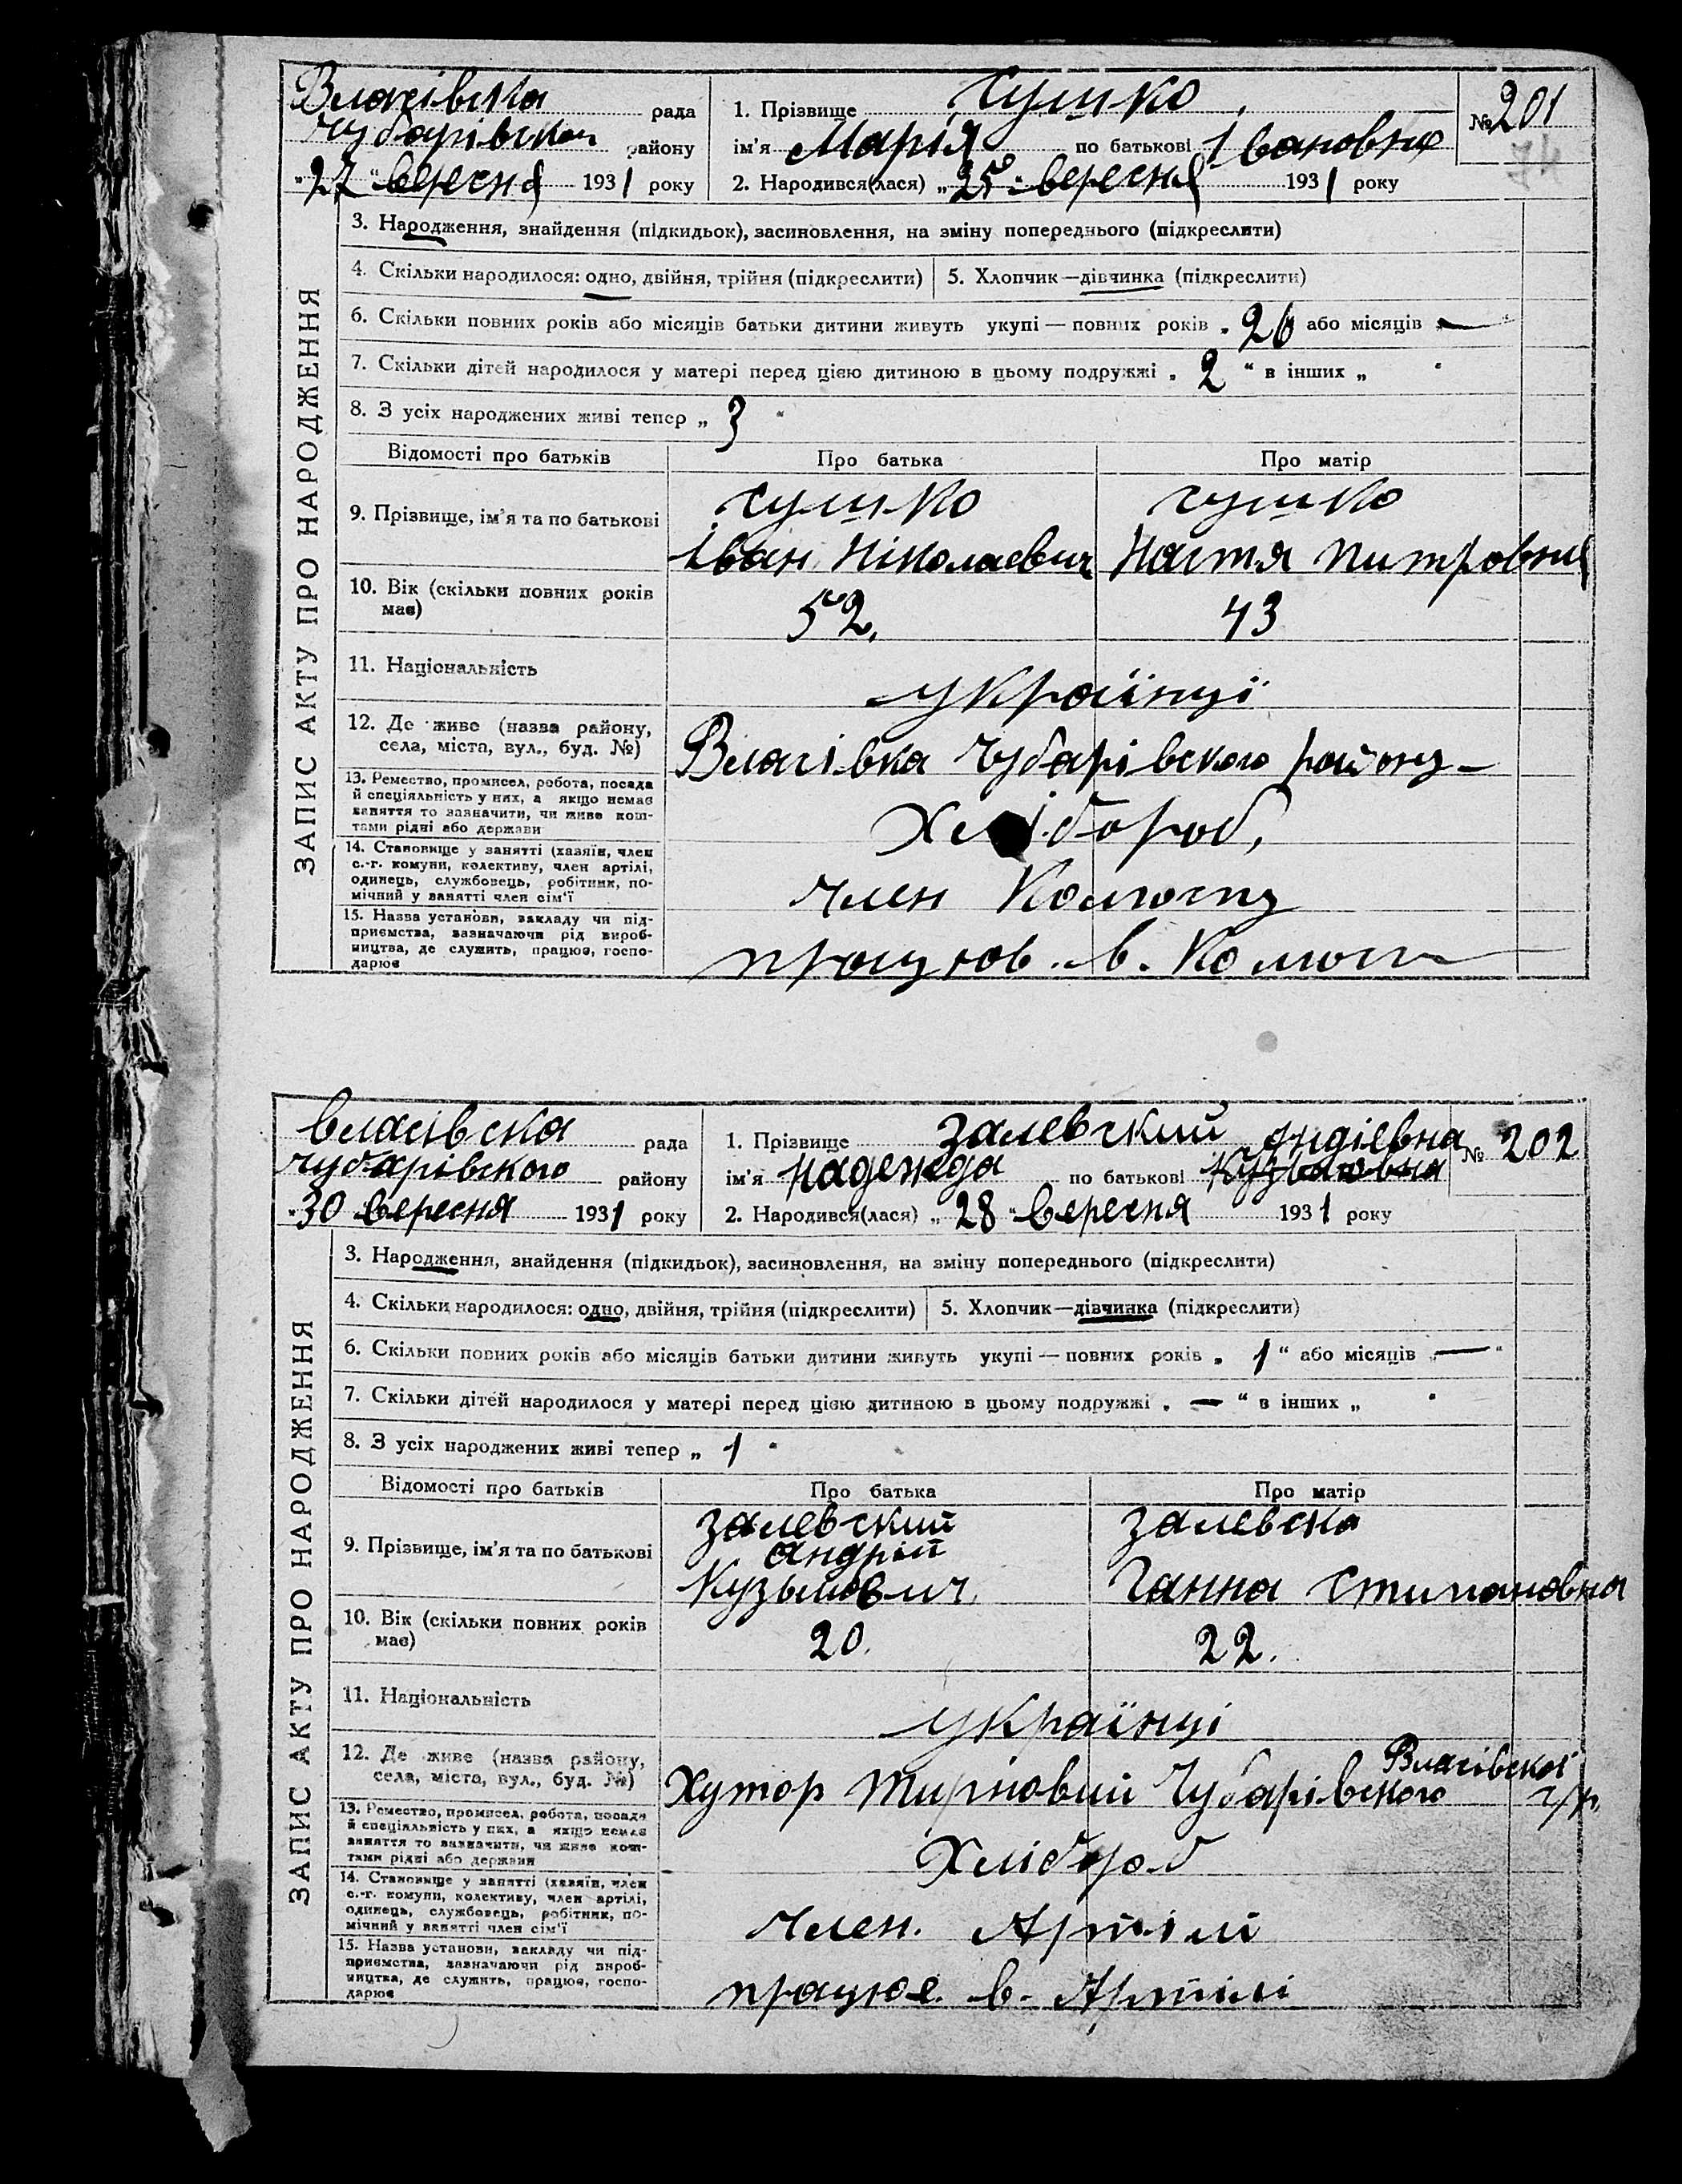 Власівська рада
Чубарівськ району
„27“ вересня 1931 року
1. Прізвище Сушко
ім'я Марія по батькові Івановна
2. Народився(лася) „25“ вересня 1931 року
№ 201
74
ЗАПИС АКТУ ПРО НАРОДЖЕННЯ
3. Народження, знайдення (підкидьок), засиновлення, на зміну попереднього (підкреслити)
4. Скільки народилося: одно, двійня, трійня (підкреслити) 5. Хлопчик—дівчинка (підкреслити)
6. Скільки повних років або місяців батьки дитини живуть укупі — повних років „ 26 або місяців „ — “
7. Скільки дітей народилося у матері перед цією дитиною в цьому подружжі „ 2 “ в інших „ “
8. З усіх народжених живі тепер „ 3 “
Відомості про батьків Про батька Про матір
9. Прізвище, ім'я та по батькові
Сушко Сушко
Іван Ніколаевич Настя Питровна
10. Вік (скільки повних років має)
52. 43
11. Національність
українці
12. Де живе (назва району, села, міста, вул., буд. №)
Власівка Чубарівского району
13. Ремество, промисел, робота, посада
й спеціяльність у них, а якщо немає
заняття то зазначити, чи живе кош-
тами рідні або держави
Хлібороб,
14. Становище у занятті (хазяїн, член
с.-г. комуни, колективу, член артілі,
одинець, службовець, робітник, по-
мічний у занятті член сім'ї
член
15. Назва установи, закладу чи під-
приємства, зазначаючи рід вироб-
ництва, де служить, працює, госпо-
дарює
в.
Власівска рада
Чубарівского району
„30 вересня 1931 року
1. Прізвище Залевский
Андіевна
ім'я Надежда по батькові Кузьмовна
2. Народився(лася) „28“ вересня 1931 року
№ 202
ЗАПИС АКТУ ПРО НАРОДЖЕННЯ
3. Народження, знайдення (підкидьок), засиновлення, на зміну попереднього (підкреслити)
4. Скільки народилося: одно, двійня, трійня (підкреслити) 5. Хлопчик—дівчинка (підкреслити)
6. Скільки повних років або місяців батьки дитини живуть укупі — повних років „ 1 “ або місяців „ — “
7. Скільки дітей народилося у матері перед цією дитиною в цьому подружжі „ — “ в інших „ “
8. З усіх народжених живі тепер „ 1 “
Відомості про батьків Про батька Про матір
9. Прізвище, ім'я та по батькові
Залевский Залевска
Андрій
Кузьмович Ганна Стипановна
10. Вік (скільки повних років має)
20. 22.
11. Національність
українці
12. Де живе (назва району, села, міста, вул., буд. №)
Власівскоі
Хутор Тирновий Чубарівского с/р.
13. Ремество, промисел, робота, посада
й спеціяльність у них, а якщо немає
заняття то зазначити, чи живе кош-
тами рідні або держави
Хлібороб
14. Становище у занятті (хазяїн, член
с.-г. комуни, колективу, член артілі,
одинець, службовець, робітник, по-
мічний у занятті член сім'ї
член. Артілі
15. Назва установи, закладу чи під-
приємства, зазначаючи рід вироб-
ництва, де служить, працює, госпо-
дарює
працює. в. Артілі